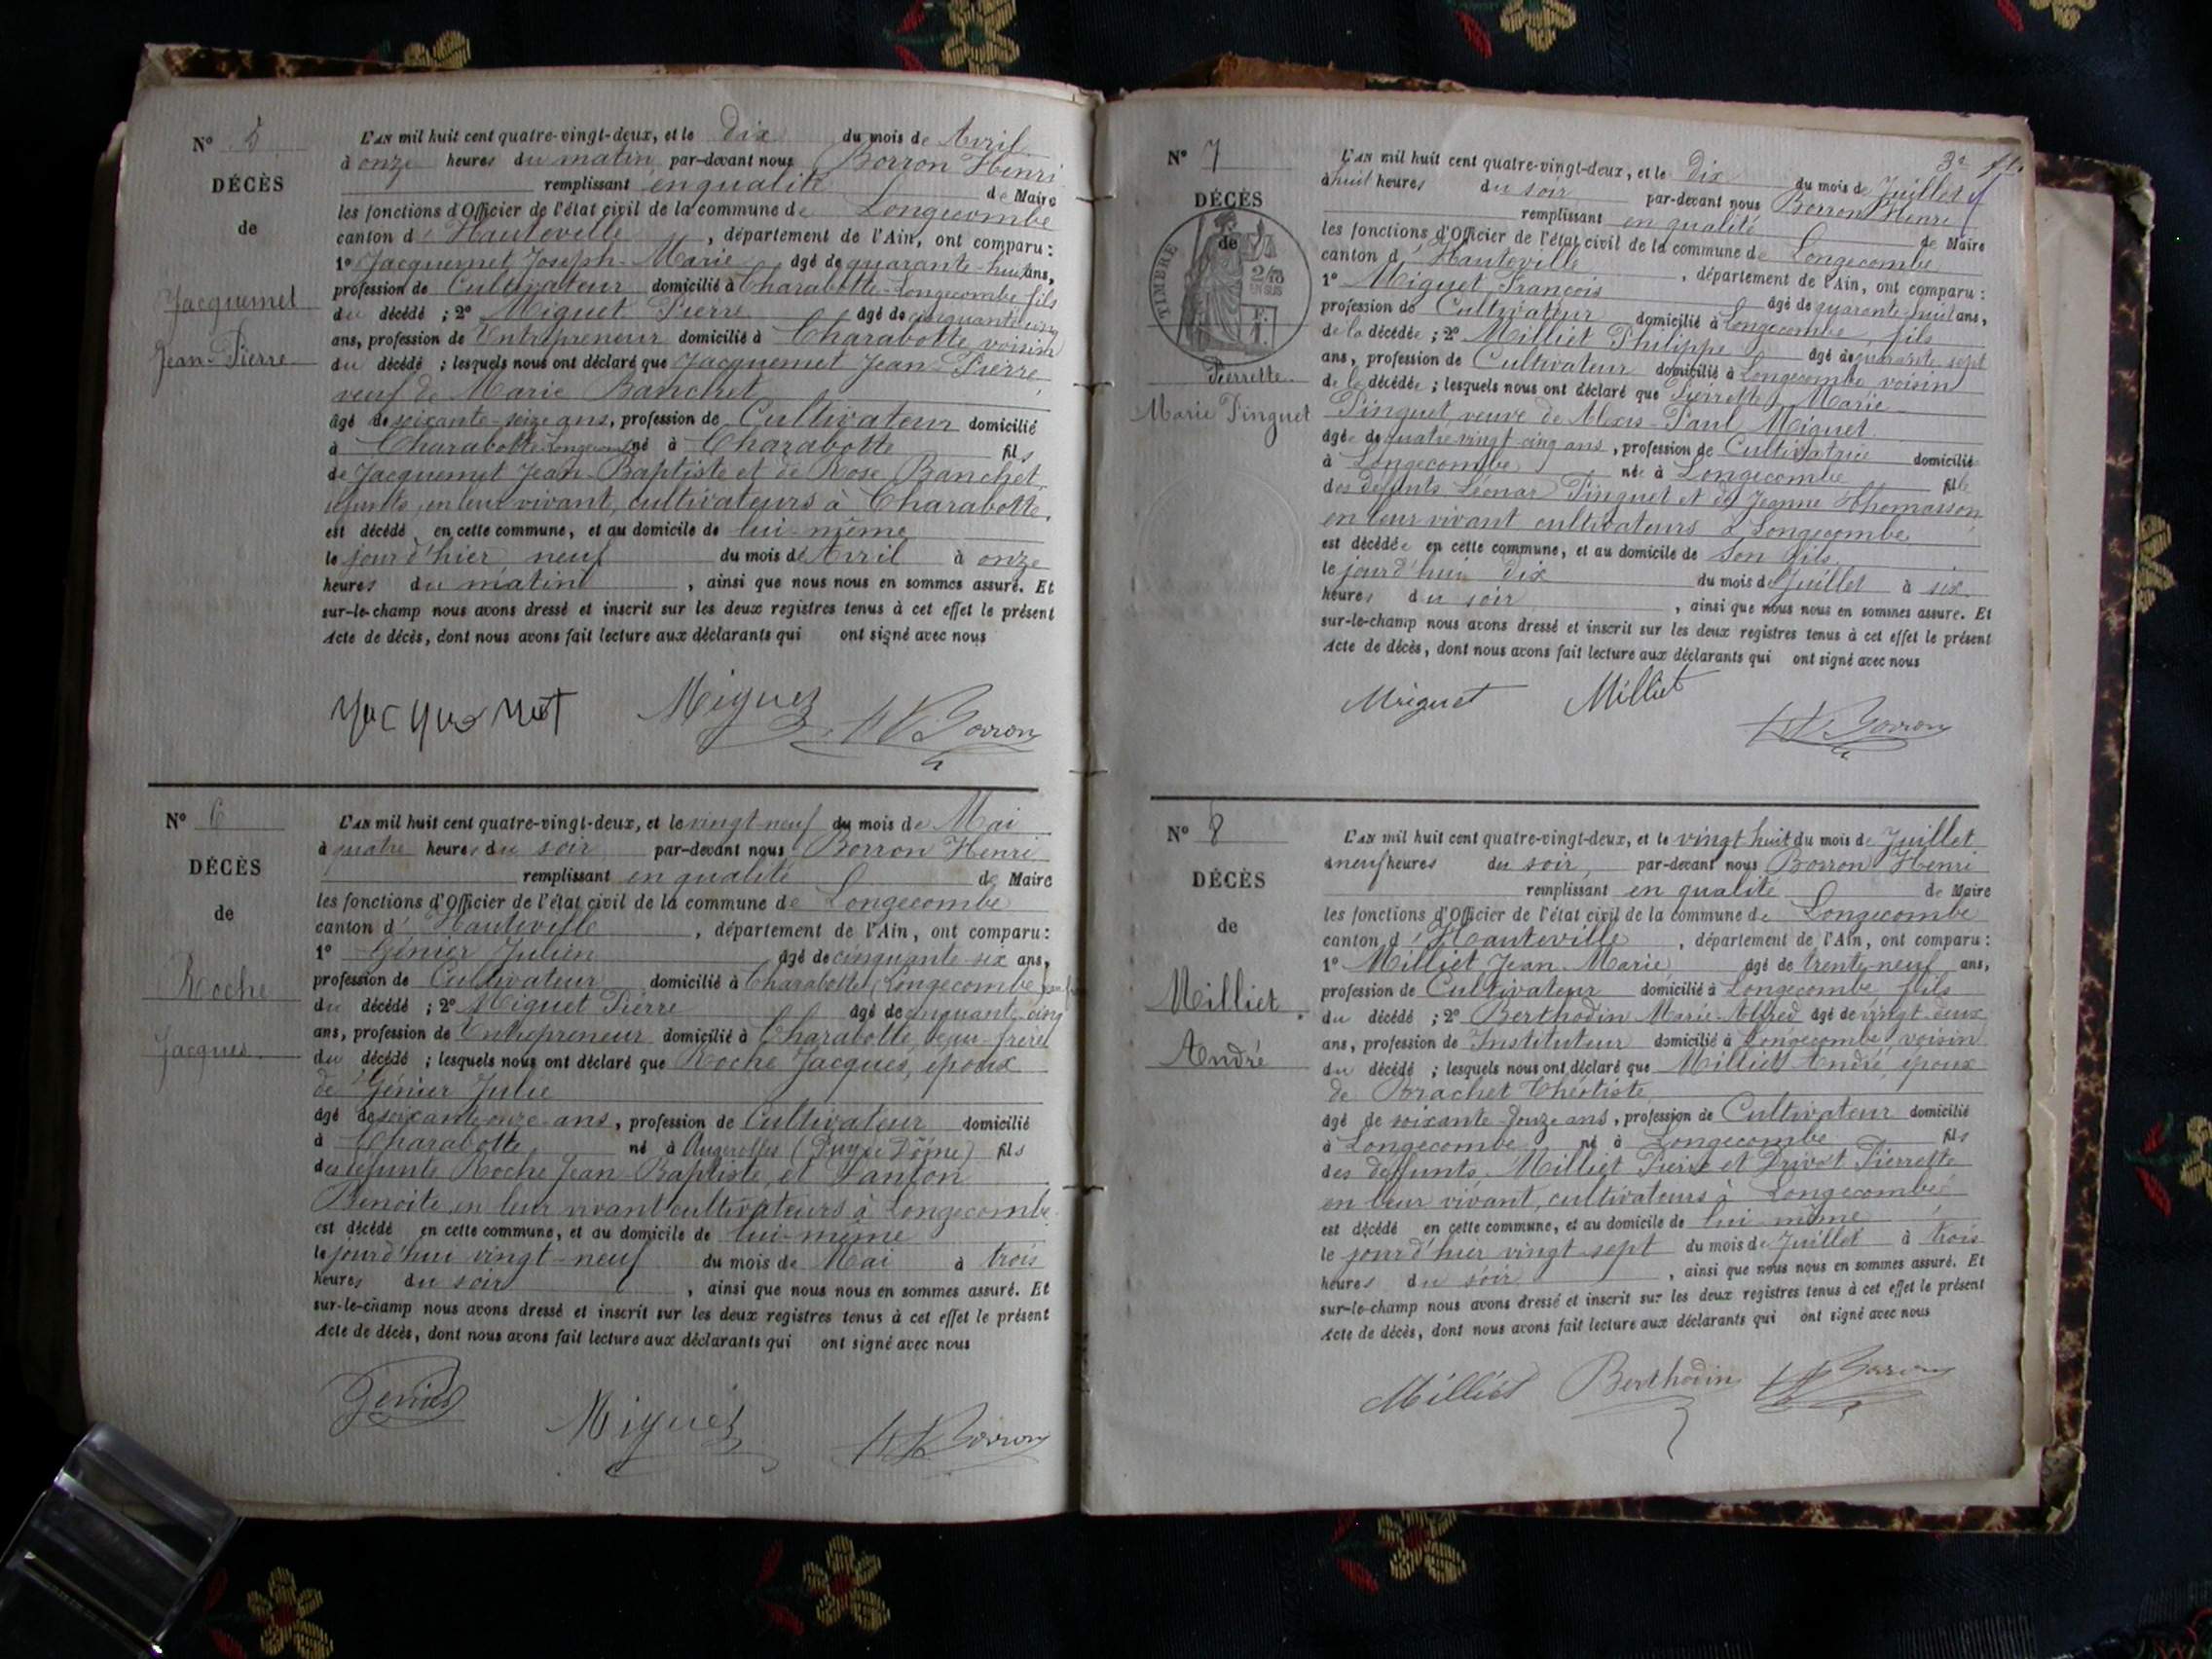 N° 5
DÉCÈS
de
Jacquemet
Jean-Pierre
L'AN mil huit cent quatre-vingt-deux, et le dix du mois de Avril
à onze heures du matin par-devant nous Borron Henri
remplissant en qualité de Maire
les fonctions d'Officier de l'état civil de la commune de Longecombe
canton d'Hauteville, département de l'Ain, ont comparu :
1° Jacquemet Joseph-Marie âgé de quarante-huit ans,
profession de Cultivateur domicilié à Charabotte-Longecombe fils
du décédé ; 2° Miguet Pierre âgé de cinquante cinq
ans, profession de Entrepreneur domicilié à Charabotte voisin
du décédé ; lesquels nous ont déclaré que Jacquemet Jean-Pierre
veuf de Marie Banchet
âgé de soixante-seize ans, profession de Cultivateur domicilié
à Charabotte Longecombe né à Charabotte fils
de Jacquemet Jean-Baptiste et de Rose Banchet
défunts, en leur vivant, cultivateurs à Charabotte.
est décédé en cette commune, et au domicile de lui-même
le jourd'hier neuf du mois de Avril à onze
heures du matin, ainsi que nous nous en sommes assuré. Et
sur-le-champ nous avons dressé et inscrit sur les deux registres tenus à cet effet le présent
Acte de décès, dont nous avons fait lecture aux déclarants qui ont signé avec nous
Jacquemet Miguet H Borron
N° 6
DÉCÈS
de
Roche
Jacques
L'AN mil huit cent quatre-vingt-deux, et le vingt-neuf du mois de Mai
à quatre heures du soir par-devant nous Borron Henri
remplissant en qualité de Maire
les fonctions d'Officier de l'état civil de la commune de Longecombe
canton d'Hauteville, département de l'Ain, ont comparu :
1° Génier Julien âgé de cinquante six ans,
profession de Cultivateur domicilié à Charabotte, Longecombe
du décédé ; 2° Miguet Pierre âgé de cinquante cinq
ans, profession de Entrepreneur domicilié à Charabotte, beau-frère
du décédé ; lesquels nous ont déclaré que Roche Jacques, époux
de Génier Julie
âgé de soixante onze ans, profession de Cultivateur domicilié
à Charabotte né à Augerolles (Puy de Dôme) fils
des défunts Roche Jean-Baptiste, et Fanton
Benoite, en leur vivant cultivateurs à Longecombe
est décédé en cette commune, et au domicile de lui-même
le jourd'hui vingt-neuf du mois de Mai à trois
heures du soir, ainsi que nous nous en sommes assuré. Et
sur-le-champ nous avons dressé et inscrit sur les deux registres tenus à cet effet le présent
Acte de décès, dont nous avons fait lecture aux déclarants qui ont signé avec nous
Genier Miguet H Borron
3e
N° 7
DÉCÈS
de
TIMBRE
2/10
EN SUS
Pierrette
Marie Pinguet
L'AN mil huit cent quatre-vingt-deux, et le dix du mois de Juillet
à huit heures du soir par-devant nous Borron Henri
remplissant en qualité de Maire
les fonctions d'Officier de l'état civil de la commune de Longecombe
canton d'Hauteville, département de l'Ain, ont comparu :
1° Miguet François âgé de quarante-huit ans,
profession de Cultivateur domicilié à Longecombe fils
de la décédée ; 2° Milliet Philippe âgé de quarante sept
ans, profession de Cultivateur domicilié à Longecombe voisin
de la décédée ; lesquels nous ont déclaré que Pierrette Marie
Pinguet, veuve de Alexis-Paul Miguet
âgée de quatre vingt-cinq ans, profession de Cultivatrice domicilié
à Longecombe née à Longecombe fille
des défunts Léonar Pinguet et de Jeanne Thomasson
en leur vivant cultivateurs à Longecombe
est décédée en cette commune, et au domicile de son fils
le jourd'hui dix du mois de Juillet à six
heures du soir, ainsi que nous nous en sommes assuré. Et
sur-le-champ nous avons dressé et inscrit sur les deux registres tenus à cet effet le présent
Acte de décès, dont nous avons fait lecture aux déclarants qui ont signé avec nous
Miguet Milliet H Borron
N° 8
DÉCÈS
de
Milliet
André
L'AN mil huit cent quatre-vingt-deux, et le vingt huit du mois de Juillet
à neuf heures du soir, par-devant nous Borron Henri
remplissant en qualité de Maire
les fonctions d'Officier de l'état civil de la commune de Longecombe
canton d'Hauteville, département de l'Ain, ont comparu :
1° Milliet Jean-Marie âgé de trente-neuf ans,
profession de Cultivateur domicilié à Longecombe fils
du décédé ; 2° Berthodin Marie-Alfred âgé de vingt-deux
ans, profession de Instituteur domicilié à Longecombe voisin
du décédé ; lesquels nous ont déclaré que Milliet André, époux
de Brachet Théotiste
âgé de soixante douze ans, profession de Cultivateur domicilié
à Longecombe né à Longecombe fils
des défunts Milliet Pierre et Drivet Pierrette
en leur vivant, cultivateurs à Longecombe
est décédé en cette commune, et au domicile de lui-même
le jourd'hier vingt-sept du mois de Juillet à trois
heures du soir, ainsi que nous nous en sommes assuré. Et
sur-le-champ nous avons dressé et inscrit sur les deux registres tenus à cet effet le présent
Acte de décès, dont nous avons fait lecture aux déclarants qui ont signé avec nous
Milliet Berthodin H Borron